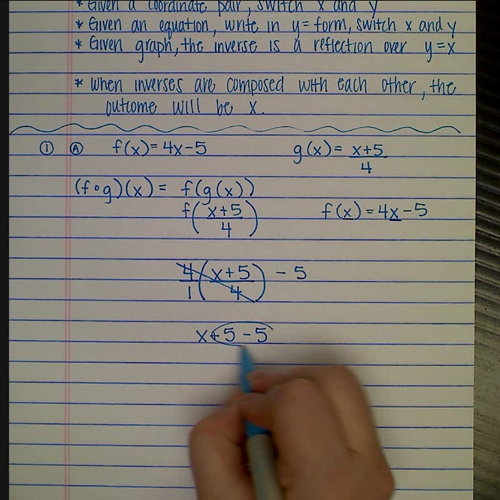 * Given a coordinate pair, switch x and y
* Given an equation, write in y= form, switch x and y
* Given graph, the inverse is a reflection over y=x
* When inverses are composed with each other, the
outcome will be x.
① Ⓐ f(x)=4x-5 g(x)= x+5/4
(f∘g)(x) = f(g(x))
f(x+5/4) f(x)=4x-5
4/1(x+5/4) - 5
x+5-5